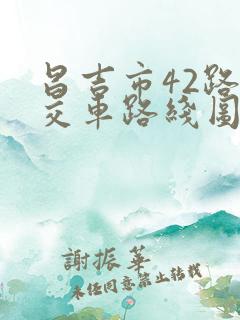 昌吉市42路
交車路綫圖
謝振華
未经同意禁止转载